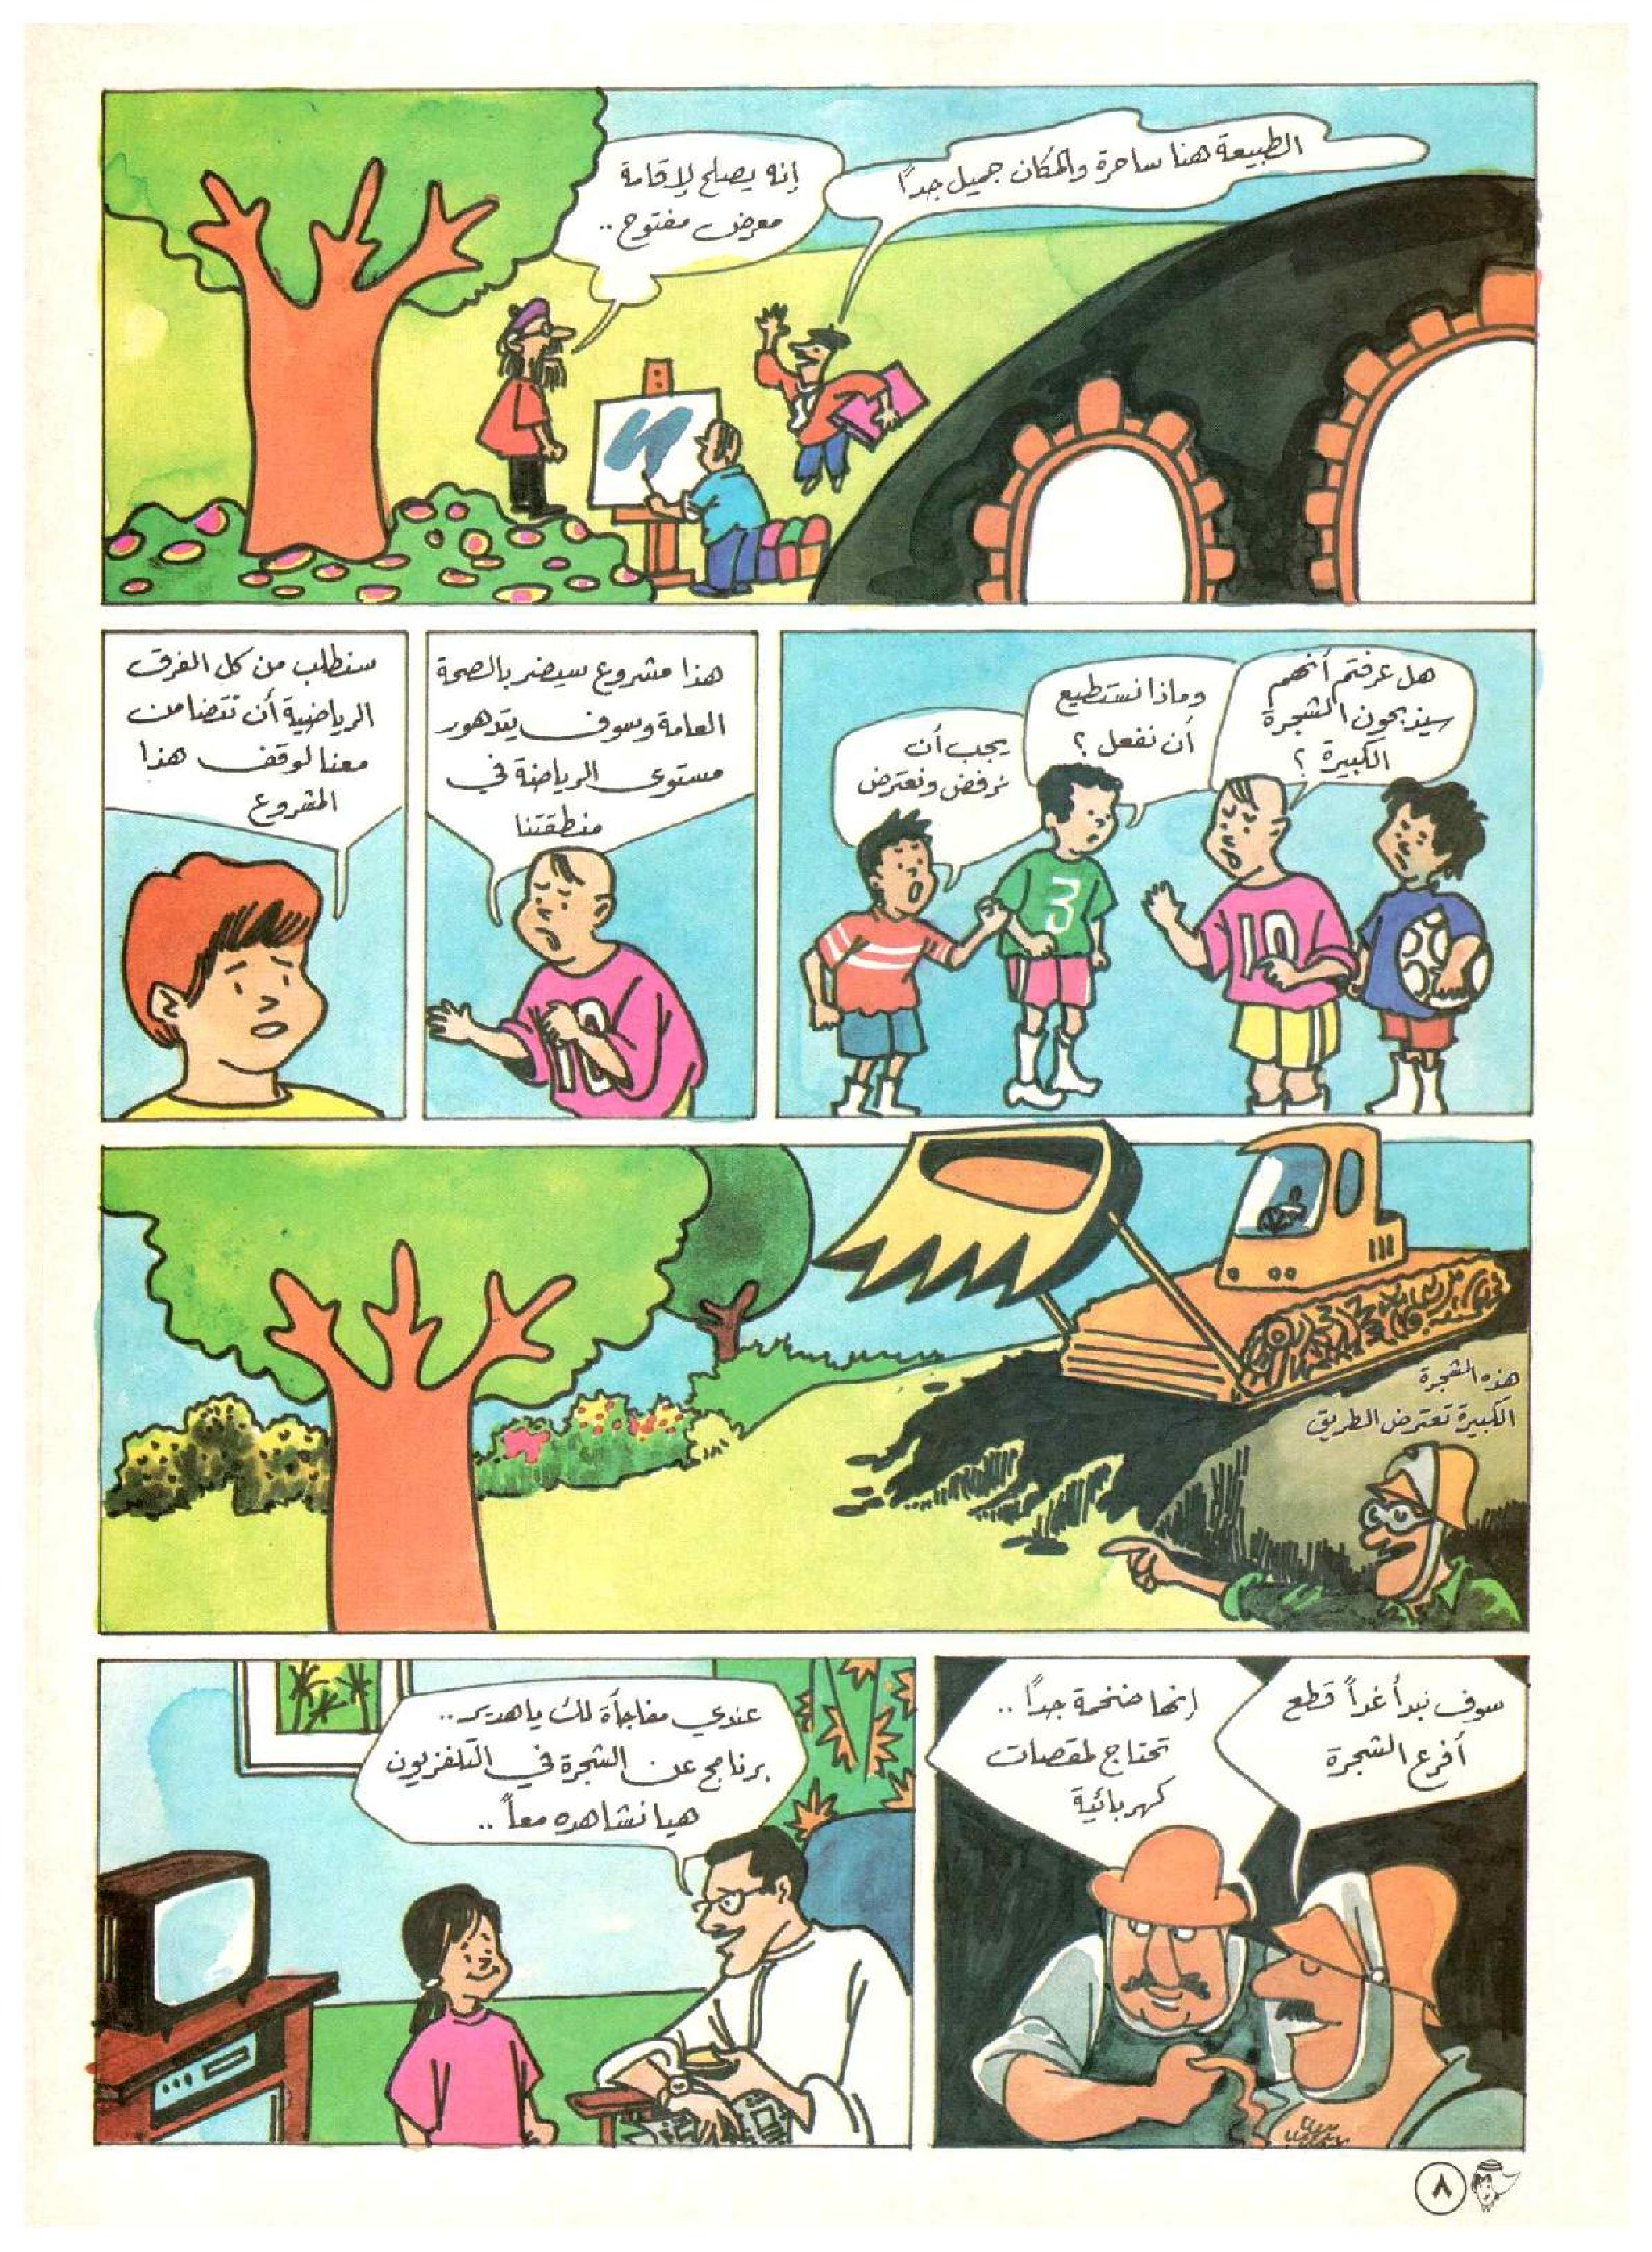 الطبيعة هنا ساحرة والمكان جميل جداً
إنه يصلح لإقامة
معرض مفتوح ..
هل عرفتم أنهم
سيذبحون الشجرة
الكبيرة ؟
وماذا نستطيع
أن نفعل ؟
يجب أن
نرفض ونعترض
3
10
هذا مشروع سيضر بالصحة
العامة وسوف يتدهور
مستوى الرياضة في
منطقتنا
10
سنطلب من كل الفرق
الرياضية أن تتضامن
معنا لوقف هذا
المشروع
هذه الشجرة
الكبيرة تعترض الطريق
سوف نبدأ غداً قطع
أفرع الشجرة
إنها ضخمة جداً ..
تحتاج لمقصات
كهربائية
عندي مفاجأة لك يا هدير ..
برنامج عن الشجرة في التلفزيون
هيا نشاهده معاً ..
٨